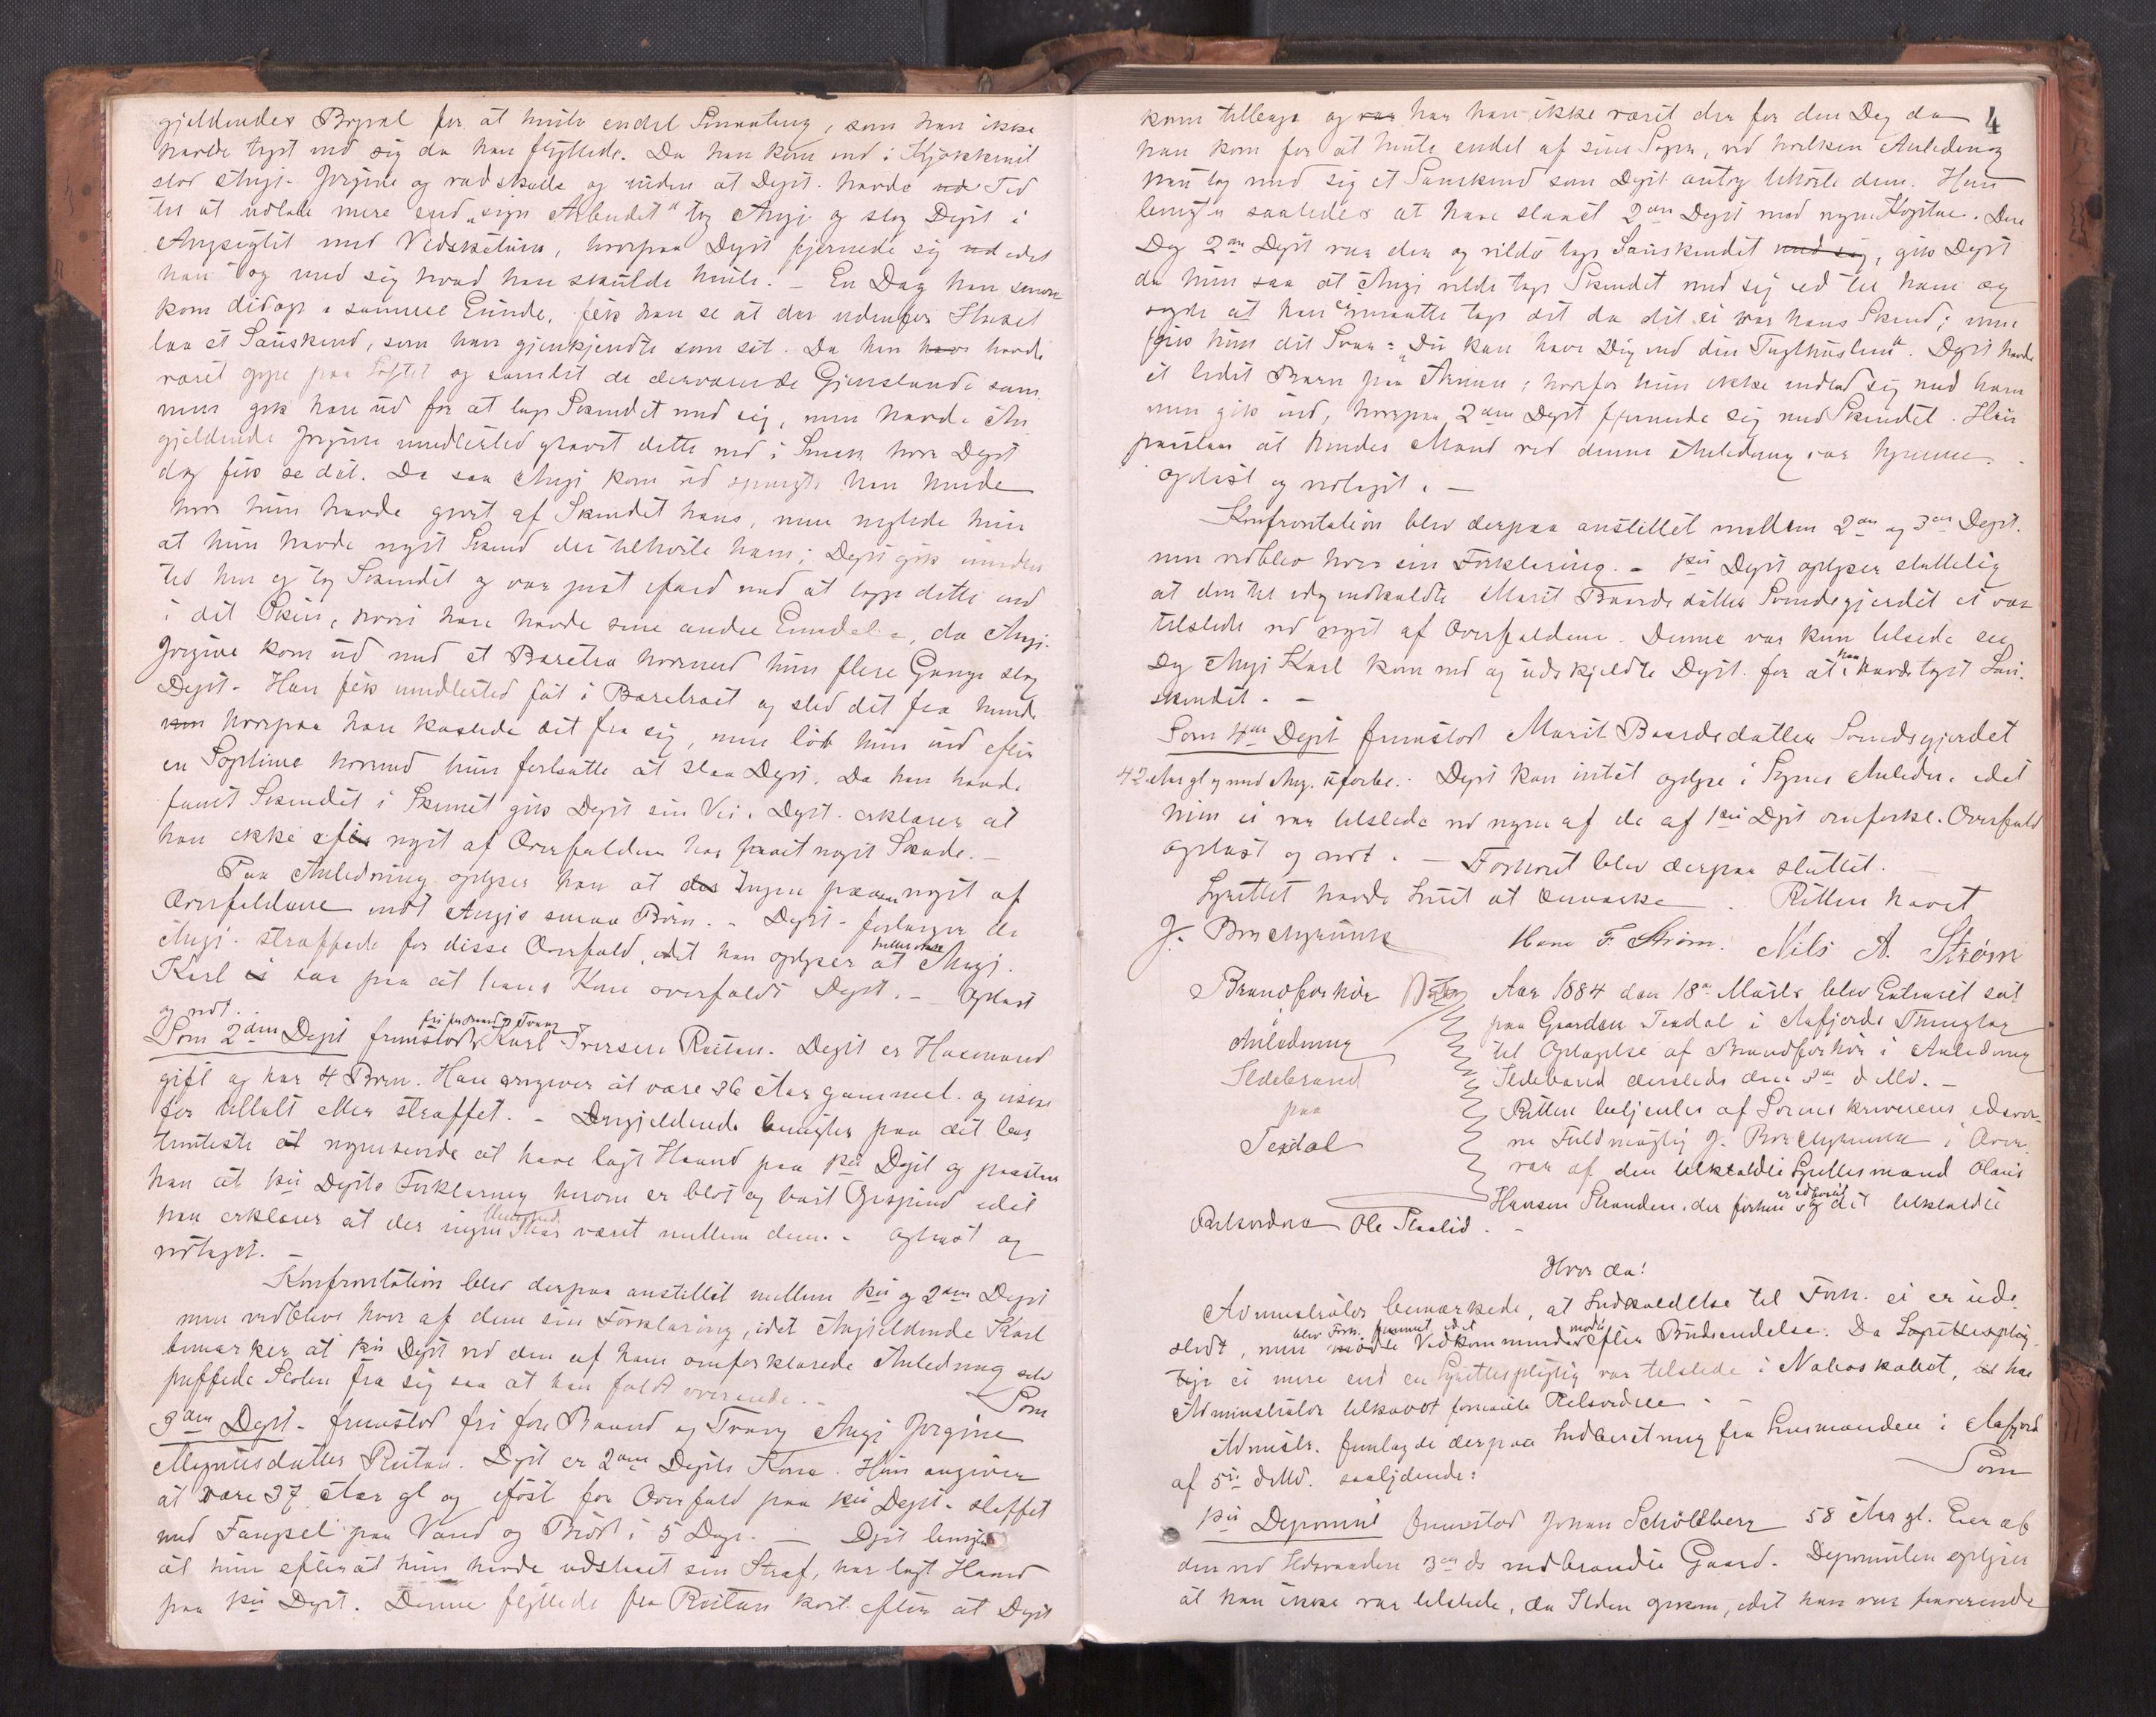 gjeldendes Bopæl for at hente endel Smaating, som han ikke
havde taget med sig da han flyttede. Da han kom ind i Kjøkkenet
stod Angj. Jørgine og vadskede og uden at Dept. havde Tid
til at udlade mere end "sign Arbeidet" tog Angj. og slog Dept i
Angsigtet med Vedskation, hvorpaa Dept fjernede sig idet
han tog med sig hvad han skulde hente. - En Dag han senere
kom didop i samme Ærinde, fik han se at der udenfor Huset
laa et Saueskind, som han gjenkjendte som sit. Da han havde
været oppe paa Loftet og samlet de derværende Gjenstande sam
men gik han ud for at tage Skindet med sig, men havde An
gjeldende Jørgine imidlertid gravet dette ned i Sneen hvor Dept
dog fik se det. Da saa Angj. kom ud spurgte han hende
hvor hun havde gjort af Skindet hans, men negtede hun
at hun havde noget Skind der tilhørte ham; Dept gik imidler
tid hen og tog Skindet og var just ifærd med at lægge dette ind
i det Skrin, hvori han havde sine andre Eiendele, da Angj.
Jørgine kom ud med et Bæretræ hvormed hun flere Gange slog
Dept. Han fik imidlertid fat i Bæretræet og sled det fra hende
hvorpaa han kastede det fra sig, men løb hun ind efter
en Soplime hvormed hun fortsatte at slaa Dept. Da han havde
faaet Skindet i Skrinet gik Dept sin Vei. Dept. erklærer at
han ikke efter noget af Overfaldene har faaet noget Skade. -
Paa Anledning oplyser han at Ingen paasaa noget af
Overfaldene undt Angjs smaa Børn. - Dept. forlanger de
Angj. straffede for disse Overfald, idet han oplyser at Angj.
Karl saa paa at hans Kone overfaldt Dept. - Oplæst
og vedt.
Som 2den Dept fremstod fri for Baand og Tvang Karl Iversen Reitan. Dept er Husmand
gift og har 4 Børn. Han angiver at være 36 Aar gammel og ikke
før tiltalt eller straffet. - Angjeldende benegter paa det be
stemteste nogensinde at have lagt Haand paa 1ste Dept og paastaar
han at 1ste Depts Forklaring herom er blot og bart Opspind idet
han erklærer at der ingen Uenighed har været mellem dem. - Oplæst og
vedtaget. -
Konfrontation blev derpaa anstillet mellem 1ste og 2den Dept
men vedblev hver af dem sin Forklaring, idet Angjeldende Karl
bemærker at 1ste Dept ved den af ham omforklarede Anledning selv
puffede Stolen fra sig saa at han faldt overende. -
Som
3den Dept. fremstod fri for Baand og Tvang Angj. Jørgine
Magnusdatter Reitan. Dept er 2den Depts Kone. Hun angiver
at være 37 Aar gl og før for Overfald paa 1ste Dept. straffet
med Fængsel paa Vand og Brød i 5 Dage. - Dept benegter
at hun efterat hun havde udstaaet sin Straf, har lagt Haand
paa 1ste Dept. Denne flyttede fra Reitan kort efter at Dept
4
kom tilbage og har han ikke været der før den Dag da
han kom for at hente endel af sine Sager, ved hvilken Anledning
han tog med sig et Saueskind som Dept. antog tilhørte dem. Hun
benegter saaledes at have slaaet Dept med nogen Kost. Den
Dag 2den Dept var der og vilde tage Saueskindet med sig, gik Dept
da hun saa at Angj vilde tage Skindet med sig ud til ham og
sagde at han ei maatte tage det da det ei var hans Skind; men
fik hun det Svar: "Du kan have Dig ind din Tugthuslem". Dept havde
et lidet Barn paa Armen; hvorfor hun ikke indlod sig med ham
men gik ind, hvorpaa Dept fjernede sig med Skindet. Hun
paastaar at hendes Mand ved denne Anledning var hjemme.
Oplæst og vedtaget. -
Konfrontation blev derpaa anstillet mellem 2den og 3die Dept.
men vedblev hver sin Forklaring. - 1ste Dept oplyser sluttelig
at den til idag indkaldte Marit Baardsdatter Sundsgjerdet ei var
tilstede ved noget af Overfaldene. Denne var kun tilstede en
Dag Angj Karl kom ned og udskjeldte Dept. for at han havde taget Saue
skindet. -
Som 4de Dept fremstod Marit Baardsdatter Sundsgjerdet
42 Aar gl og med Ang. uforbe. Dept kan intet oplyse i Sagens Anledn. idet
hun ei var tilstede ved nogen af de af 1ste Dept omforkl. Overfald
Oplæst og vedt. - Forhøret blev derpaa sluttet.
Lrettet havde Intet at bemærke. Retten hævet
J. Brechmunk Hans F. Strøm. Nils A. Strøm
Brandforhør
i
Anledning
Ildebrand
paa
Teksdal
Aar 1884 den 18de Marts blev Extraret sat
paa Gaarden Teksdal i Aafjords Thinglag
til Optagelse af Brandforhør i Anledning
Ildebrand dersteds den 3die d Md. -
Retten betjentes af Sorenskriverens edsvor-
ne Fuldmægtig J. Brechmunk i Over-
vær af den tilkaldte Lrettesmand Olaus
Hansen Stranden, der forhen er edfæstet og det tilkaldte
Retsvidne Ole Staalid. -
Hvor da!
Administrator bemærkede, at Indkaldelse til Forh. ei er ude
stedt, men blev Forh. fremmet idet Vedkommende mødte efter Budsendelse. Da Lrettesplig
tige ei mere end en Lrettespligtig var tilstede i Naboskabet, har
Administrator tilkaldt fornævnte Retsvidne -
Administr. fremlagde derpaa Indberetning fra Lensmanden i Aafjord
af 5te d Md. saalydende:
Som
1ste Deponent fremstod Johan Schöltberg 58 Aar gl. Eier af
den ved Ildsvaaden 3die ds nedbrændte Gaard. Deponenten oplyser
at han ikke var tilstede, da Ilden opkom, idet han var fraværende